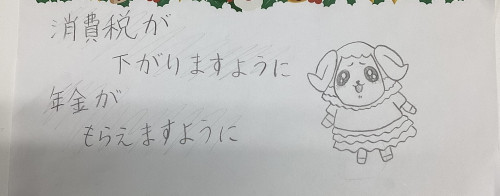 消費税が
下がりますように
年金が
もらえますように